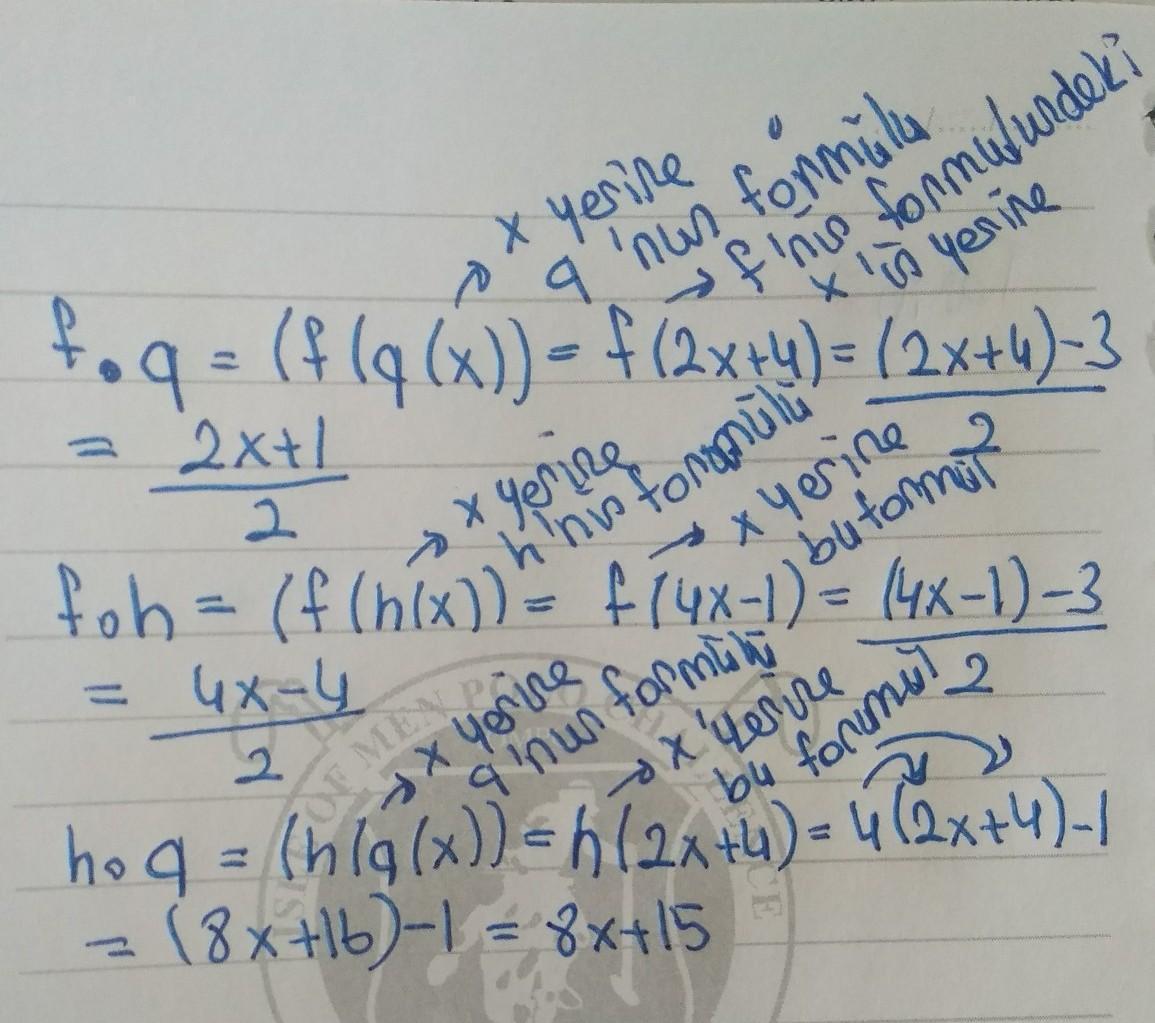 x yerine
q 'nun formülü
f'nin formulundeki
x 'in yerine
f∘q = (f(q(x)) = f(2x+4) = (2x+4)-3 / 2
= 2x+1 / 2
x yerine
h'nin formülü
x yerine
bu formül
foh = (f(h(x)) = f(4x-1) = (4x-1)-3 / 2
= 4x-4 / 2
x yerine
q'nun formülü
x yerine
bu formül
hoq = (h(q(x)) = h(2x+4) = 4(2x+4)-1
= (8x+16)-1 = 8x+15